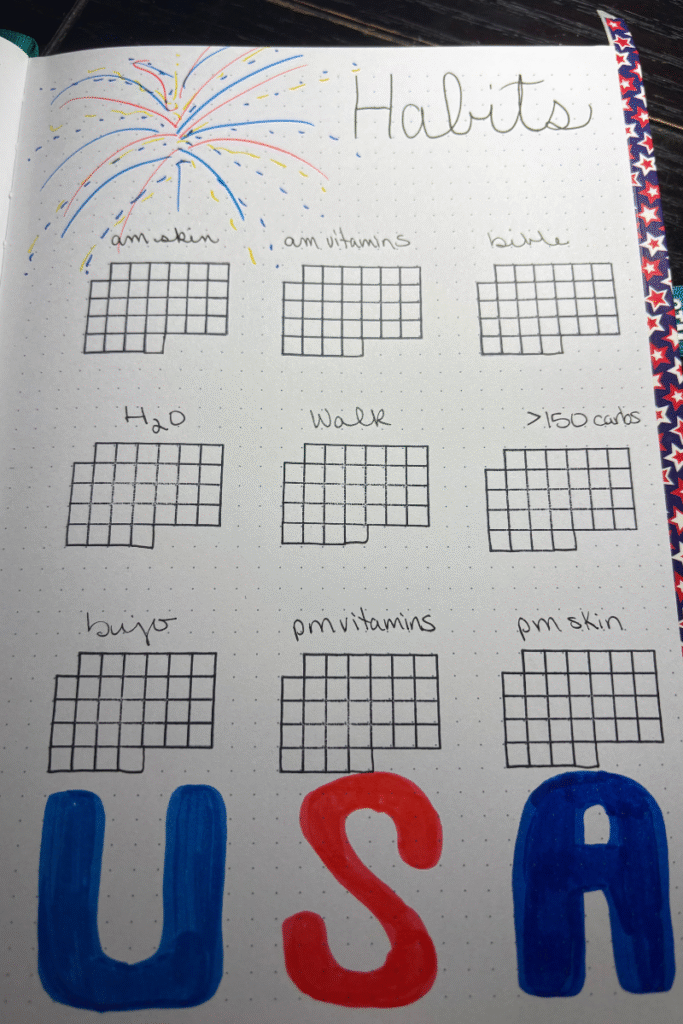 Habits
am skin am vitamins bible
H₂O Walk >150 carbs
bujo pm vitamins pm skin
USA